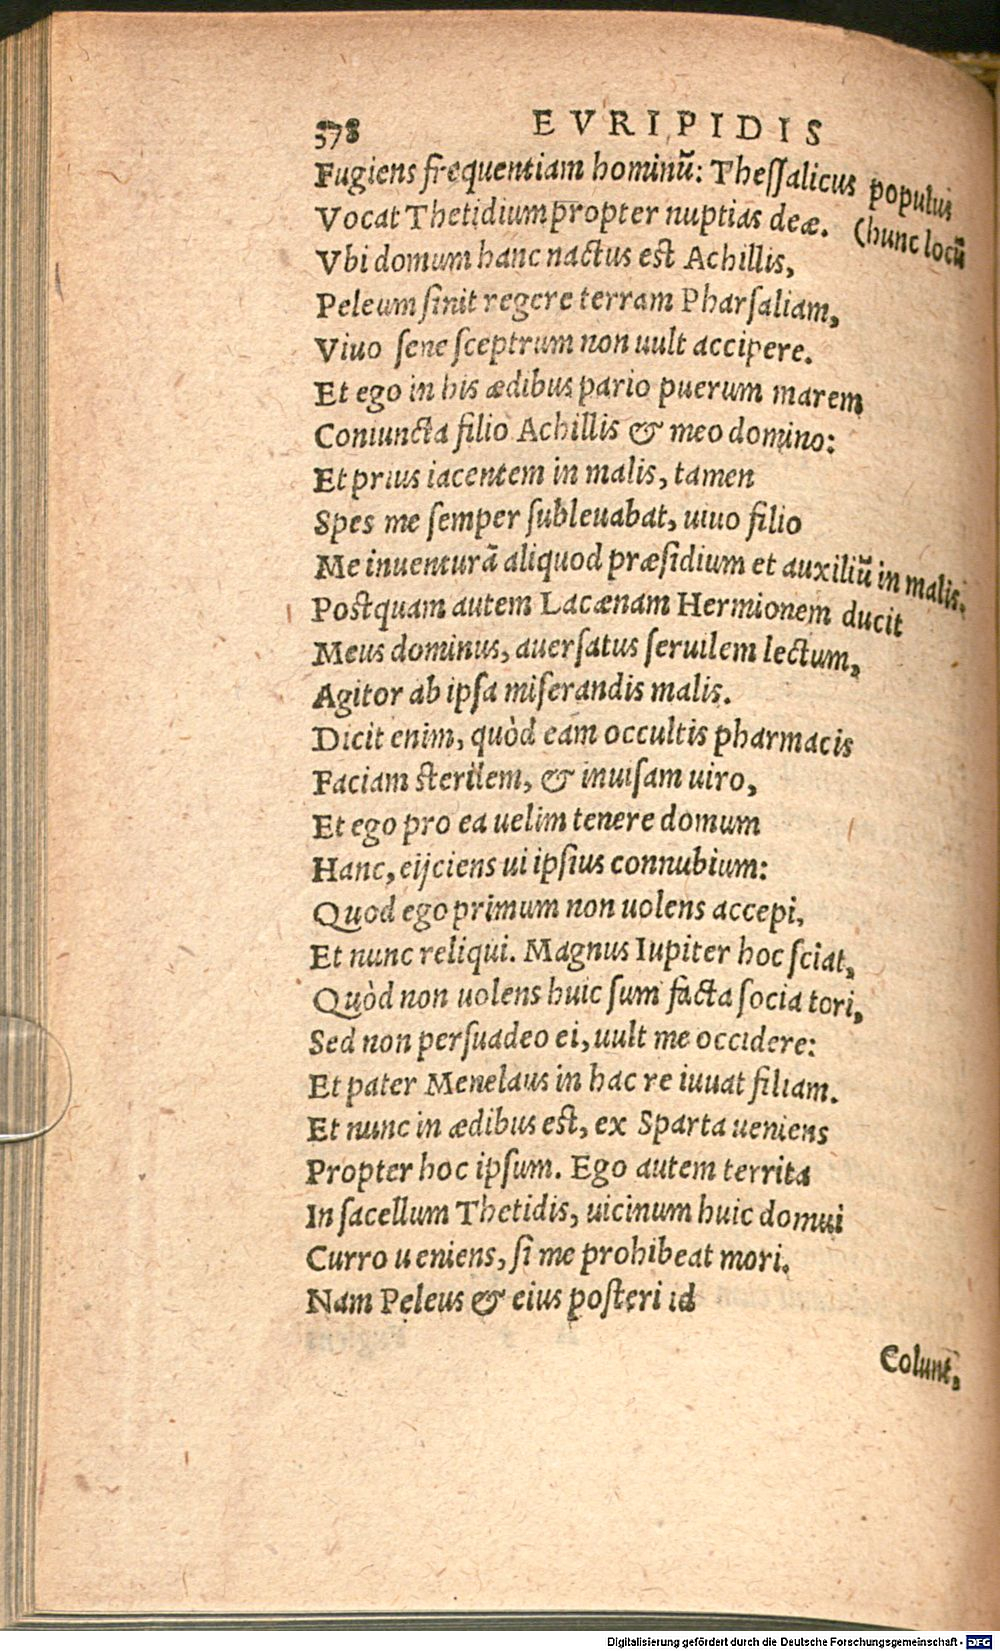 378 EVRIPIDIS
Fugiens frequentiam hominū: Theſſalicus populus
Vocat Thetidium propter nuptias deæ. (hunc locū
Vbi domum hanc nactus est Achillis,
Peleum ſinit regere terram Pharſaliam,
Viuo ſene ſceptrum non uult accipere.
Et ego in his ædibus pario puerum marem
Coniuncta filio Achillis & meo domino:
Et prius iacentem in malis, tamen
Spes me ſemper ſubleuabat, uiuo filio
Me inuenturā aliquod præſidium et auxiliū in malis.
Postquam autem Lacænam Hermionem ducit
Meus dominus, auerſatus ſeruilem lectum,
Agitor ab ipſa miſerandis malis.
Dicit enim, quòd eam occultis pharmacis
Faciam sterilem, & inuiſam uiro,
Et ego pro ea uelim tenere domum
Hanc, eijciens ui ipſius connubium:
Quod ego primum non uolens accepi,
Et nunc reliqui. Magnus Iupiter hoc ſciat,
Quòd non uolens huic ſum facta ſocia tori,
Sed non perſuadeo ei, uult me occidere:
Et pater Menelaus in hac re iuuat filiam.
Et nunc in ædibus est, ex Sparta ueniens
Propter hoc ipſum. Ego autem territa
In ſacellum Thetidis, uicinum huic domui
Curro ueniens, ſi me prohibeat mori.
Nam Peleus & eius poſteri id
Colunt,
Digitalisierung gefördert durch die Deutsche Forschungsgemeinschaft - DFG